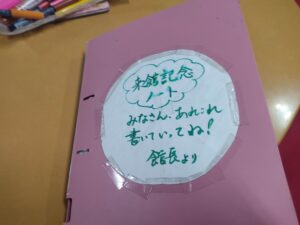 来館記念
ノート
みなさん、あれこれ
書いていってね!
館長より